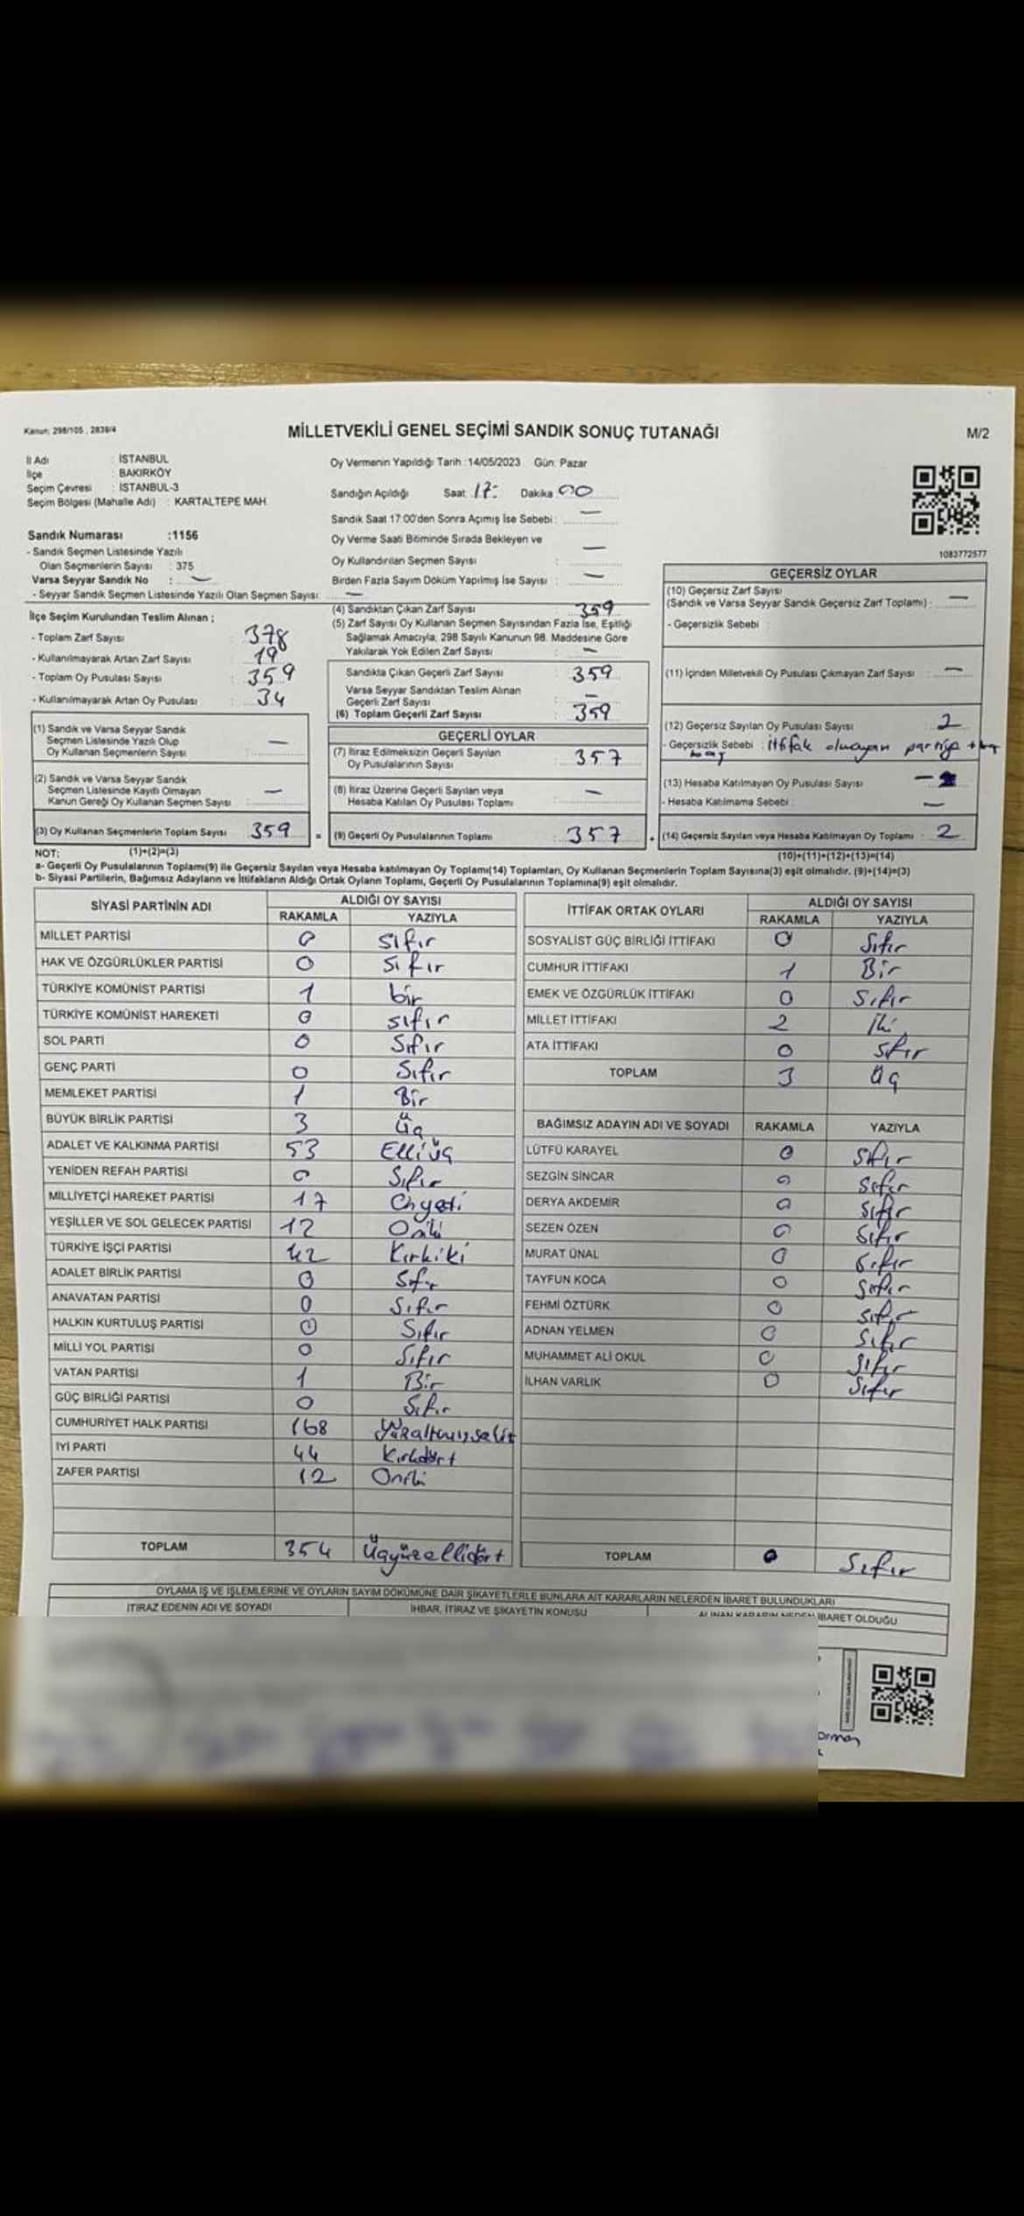 Kanun: 298/105 ; 2839/4
MİLLETVEKİLİ GENEL SEÇİMİ SANDIK SONUÇ TUTANAĞI
M/2
İl Adı : İSTANBUL
İlçe : BAKIRKÖY
Seçim Çevresi : İSTANBUL-3
Seçim Bölgesi (Mahalle Adı) : KARTALTEPE MAH
Oy Vermenin Yapıldığı Tarih :14/05/2023 Gün: Pazar
Sandığın Açıldığı Saat 17: Dakika 00
Sandık Saat 17:00'den Sonra Açımış İse Sebebi : —
Oy Verme Saati Bitiminde Sırada Bekleyen ve
Oy Kullandırılan Seçmen Sayısı : —
Birden Fazla Sayım Döküm Yapılmış İse Sayısı : —
1083772577
Sandık Numarası :1156
- Sandık Seçmen Listesinde Yazılı
Olan Seçmenlerin Sayısı : 375
Varsa Seyyar Sandık No : —
- Seyyar Sandık Seçmen Listesinde Yazılı Olan Seçmen Sayısı: —
İlçe Seçim Kurulundan Teslim Alınan ;
- Toplam Zarf Sayısı : 378
- Kullanılmayarak Artan Zarf Sayısı : 19
- Toplam Oy Pusulası Sayısı : 359
- Kullanılmayarak Artan Oy Pusulası : 34
(1) Sandık ve Varsa Seyyar Sandık
Seçmen Listesinde Yazılı Olup
Oy Kullanan Seçmenlerin Sayısı : —
(2) Sandık ve Varsa Seyyar Sandık
Seçmen Listesinde Kayıtlı Olmayan
Kanun Gereği Oy Kullanan Seçmen Sayısı : —
(3) Oy Kullanan Seçmenlerin Toplam Sayısı : 359 =
NOT: (1)+(2)=(3)
(4) Sandıktan Çıkan Zarf Sayısı : 359
(5) Zarf Sayısı Oy Kullanan Seçmen Sayısından Fazla İse, Eşitliği
Sağlamak Amacıyla, 298 Sayılı Kanunun 98. Maddesine Göre
Yakılarak Yok Edilen Zarf Sayısı : —
Sandıkta Çıkan Geçerli Zarf Sayısı : 359
Varsa Seyyar Sandıktan Teslim Alınan
Geçerli Zarf Sayısı : —
(6) Toplam Geçerli Zarf Sayısı : 359
GEÇERLİ OYLAR
(7) İtiraz Edilmeksizin Geçerli Sayılan
Oy Pusulalarının Sayısı : 357
(8) İtiraz Üzerine Geçerli Sayılan veya
Hesaba Katılan Oy Pusulası Toplamı : —
(9) Geçerli Oy Pusulalarının Toplamı : 357 +
GEÇERSİZ OYLAR
(10) Geçersiz Zarf Sayısı
(Sandık ve Varsa Seyyar Sandık Geçersiz Zarf Toplamı) : —
- Geçersizlik Sebebi :
(11) İçinden Milletvekili Oy Pusulası Çıkmayan Zarf Sayısı : —
(12) Geçersiz Sayılan Oy Pusulası Sayısı : 2
- Geçersizlik Sebebi : ittifak olmayan partiye
(13) Hesaba Katılmayan Oy Pusulası Sayısı : —
- Hesaba Katılmama Sebebi : —
(14) Geçersiz Sayılan veya Hesaba Katılmayan Oy Toplamı : 2
(10)+(11)+(12)+(13)=(14)
a- Geçerli Oy Pusulalarının Toplamı(9) ile Geçersiz Sayılan veya Hesaba katılmayan Oy Toplamı(14) Toplamları, Oy Kullanan Seçmenlerin Toplam Sayısına(3) eşit olmalıdır. (9)+(14)=(3)
b- Siyasi Partilerin, Bağımsız Adayların ve İttifakların Aldığı Ortak Oyların Toplamı, Geçerli Oy Pusulalarının Toplamına(9) eşit olmalıdır.
SİYASİ PARTİNİN ADI ALDIĞI OY SAYISI
RAKAMLA YAZIYLA
MİLLET PARTİSİ 0 sıfır
HAK VE ÖZGÜRLÜKLER PARTİSİ 0 sıfır
TÜRKİYE KOMÜNİST PARTİSİ 1 bir
TÜRKİYE KOMÜNİST HAREKETİ 0 sıfır
SOL PARTİ 0 Sıfır
GENÇ PARTİ 0 Sıfır
MEMLEKET PARTİSİ 1 Bir
BÜYÜK BİRLİK PARTİSİ 3 Üç
ADALET VE KALKINMA PARTİSİ 53 Elliüç
YENİDEN REFAH PARTİSİ 0 Sıfır
MİLLİYETÇİ HAREKET PARTİSİ 17 Onyedi
YEŞİLLER VE SOL GELECEK PARTİSİ 12 Oniki
TÜRKİYE İŞÇİ PARTİSİ 42 Kırkiki
ADALET BİRLİK PARTİSİ 0 Sıfır
ANAVATAN PARTİSİ 0 Sıfır
HALKIN KURTULUŞ PARTİSİ 0 Sıfır
MİLLİ YOL PARTİSİ 0 Sıfır
VATAN PARTİSİ 1 Bir
GÜÇ BİRLİĞİ PARTİSİ 0 Sıfır
CUMHURİYET HALK PARTİSİ 168 Yüzaltmışsekiz
İYİ PARTİ 44 Kırkdört
ZAFER PARTİSİ 12 Oniki
TOPLAM 354 Üçyüzellidört
İTTİFAK ORTAK OYLARI ALDIĞI OY SAYISI
RAKAMLA YAZIYLA
SOSYALİST GÜÇ BİRLİĞİ İTTİFAKI 0 Sıfır
CUMHUR İTTİFAKI 1 Bir
EMEK VE ÖZGÜRLÜK İTTİFAKI 0 Sıfır
MİLLET İTTİFAKI 2 İki
ATA İTTİFAKI 0 Sıfır
TOPLAM 3 Üç
BAĞIMSIZ ADAYIN ADI VE SOYADI RAKAMLA YAZIYLA
LÜTFÜ KARAYEL 0 Sıfır
SEZGİN SİNCAR 0 Sıfır
DERYA AKDEMİR 0 Sıfır
SEZEN ÖZEN 0 Sıfır
MURAT ÜNAL 0 Sıfır
TAYFUN KOCA 0 Sıfır
FEHMİ ÖZTÜRK 0 Sıfır
ADNAN YELMEN 0 Sıfır
MUHAMMET ALİ OKUL 0 Sıfır
İLHAN VARLIK 0 Sıfır
TOPLAM 0 Sıfır
OYLAMA İŞ VE İŞLEMLERİNE VE OYLARIN SAYIM DÖKÜMÜNE DAİR ŞİKAYETLERLE BUNLARA AİT KARARLARIN NELERDEN İBARET BULUNDUKLARI
İTİRAZ EDENİN ADI VE SOYADI İHBAR, İTİRAZ VE ŞİKAYETİN KONUSU ALINAN KARARIN NEDEN İBARET OLDUĞU